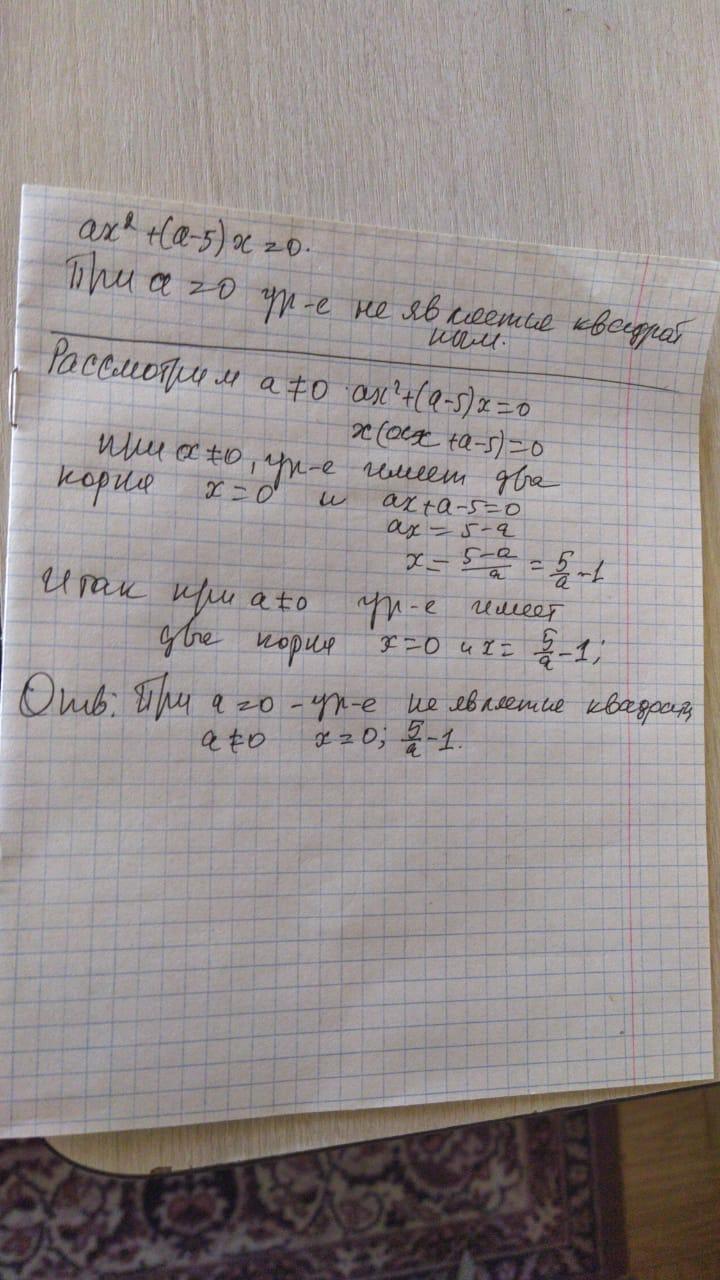 ax² + (a-5)x = 0.
При a = 0 ур-е не является квадрат
ным.
Рассмотрим a ≠ 0 ax² + (a-5)x = 0
x(ax + a-5) = 0
при a ≠ 0, ур-е имеет два
корня x = 0 и ax + a-5 = 0
ax = 5-a
x = (5-a)/a = 5/a - 1
Итак при a ≠ 0 ур-е имеет
два корня x = 0 и x = 5/a - 1;
Отв: При a = 0 - ур-е не является квадратн
a ≠ 0 x = 0; 5/a - 1.